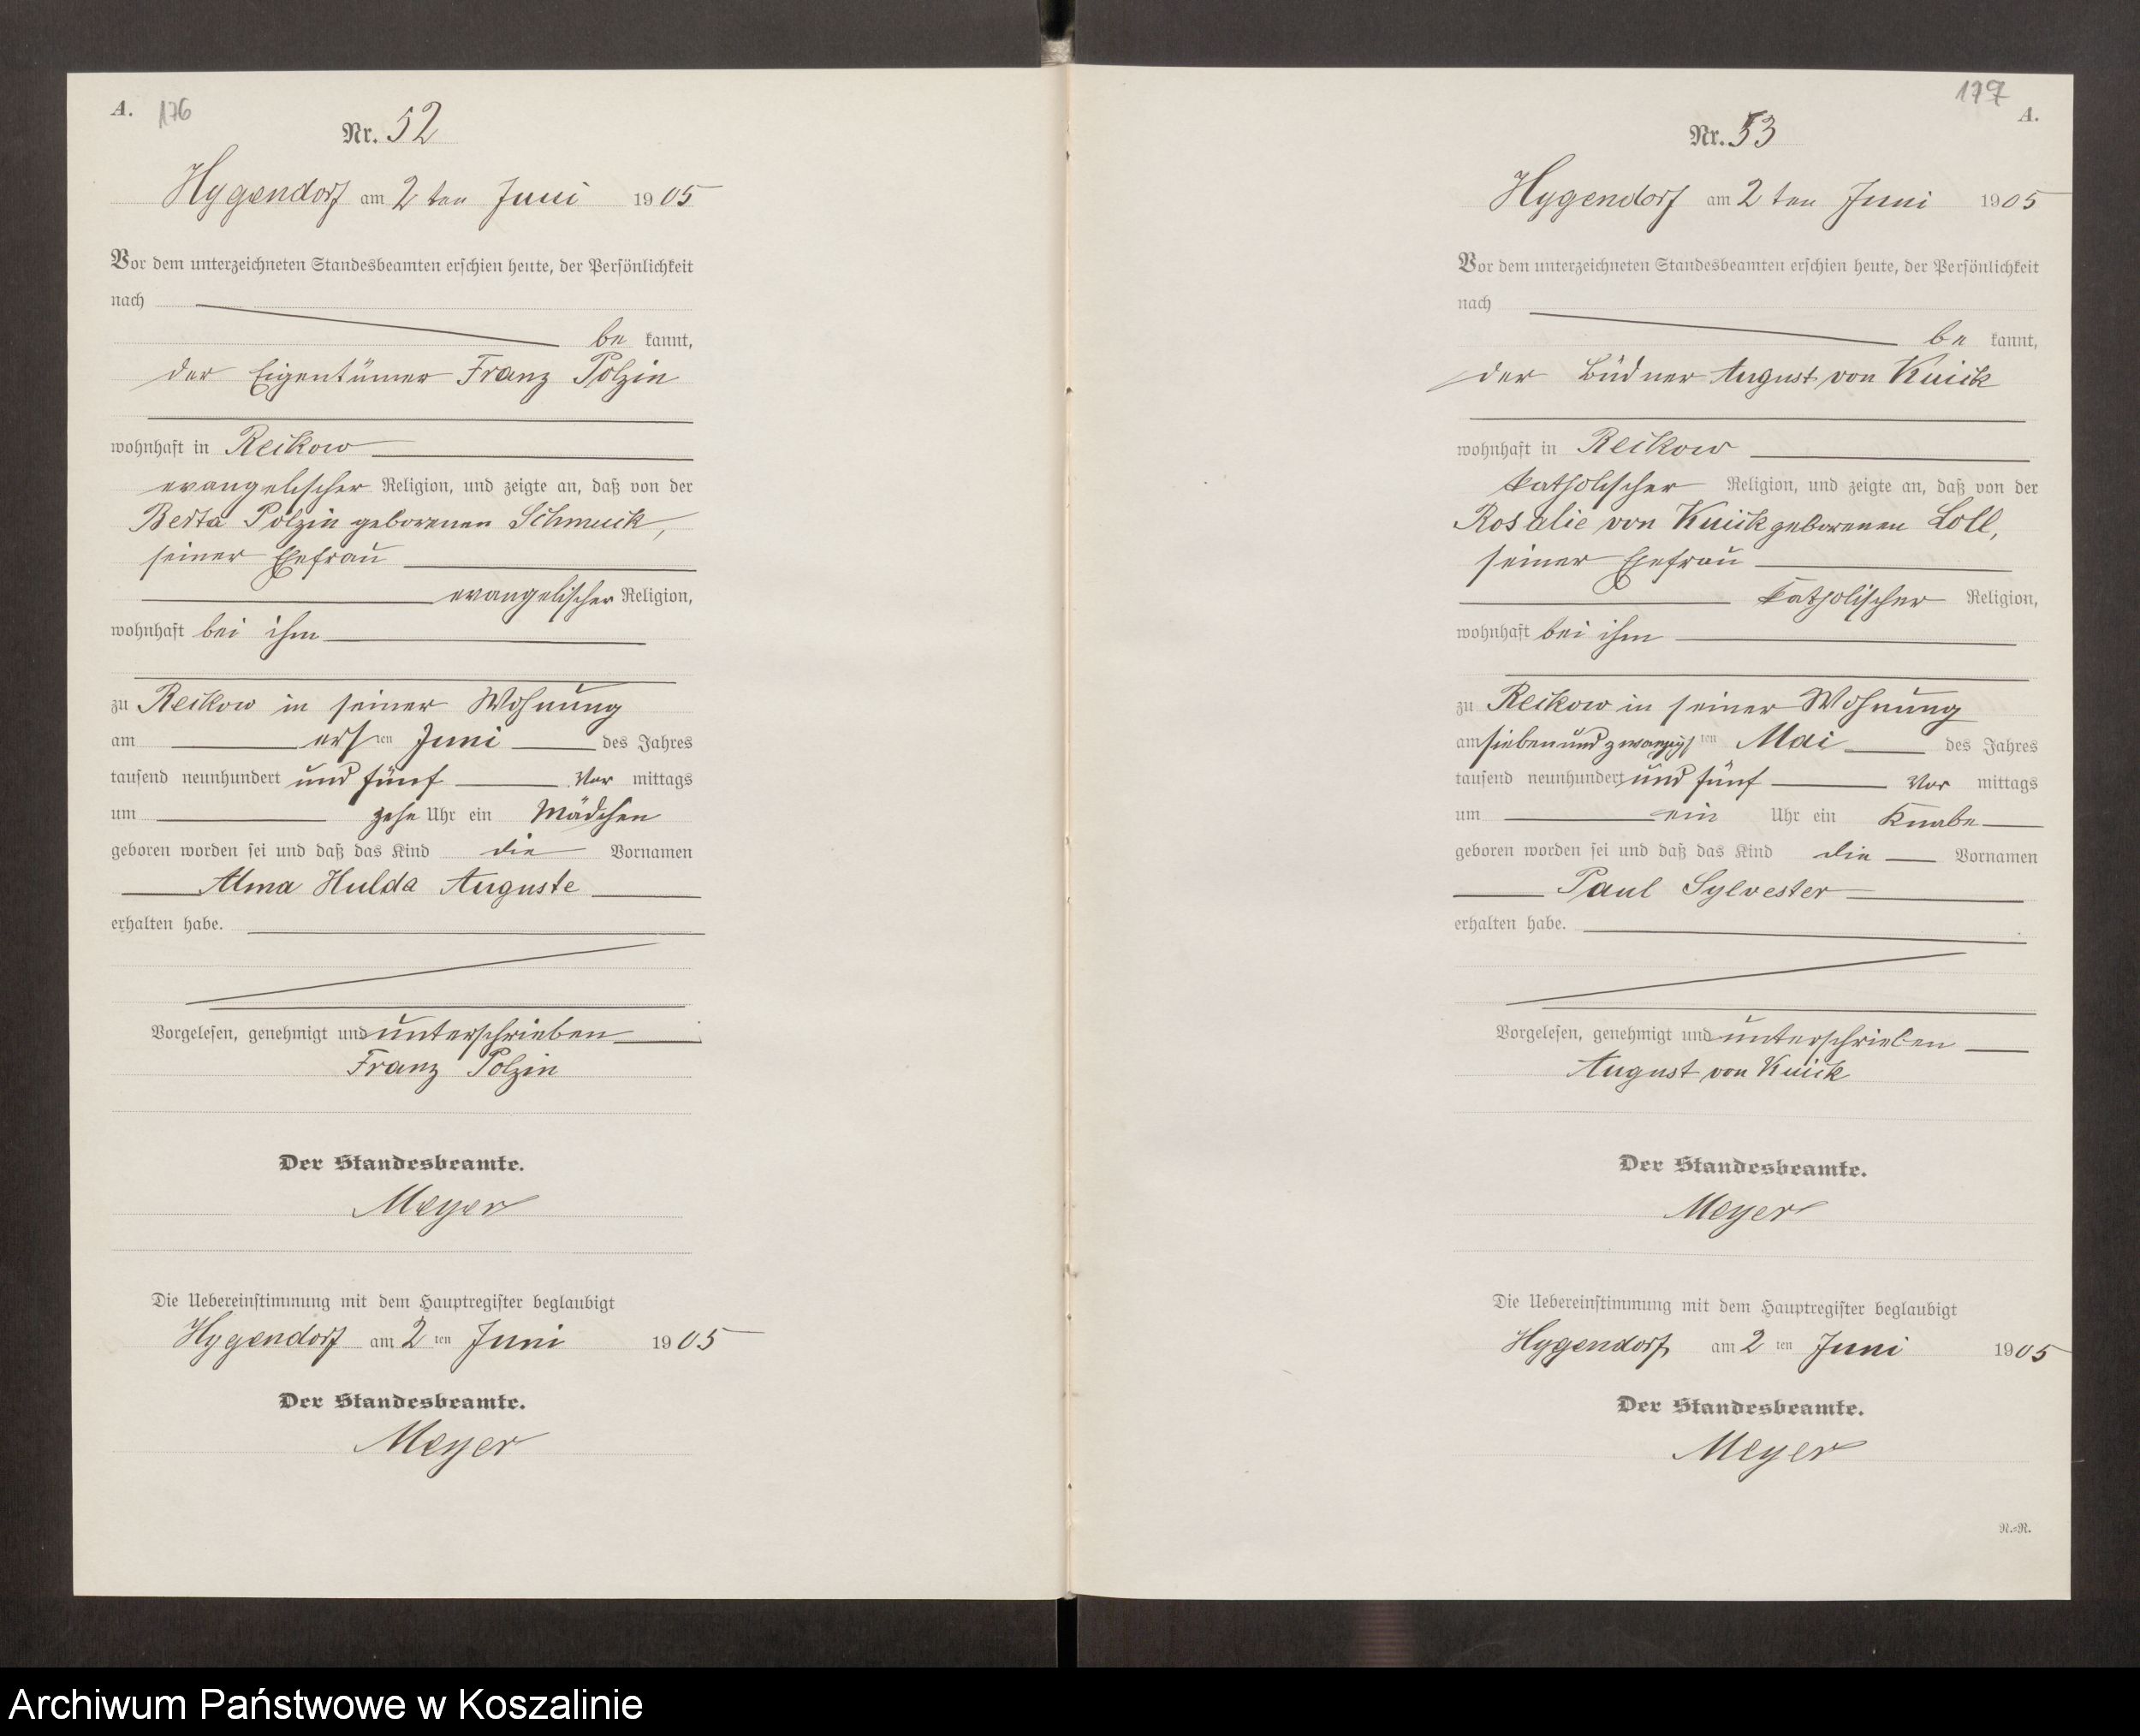 A. 176
Nr. 52
Hygendorf am 2 ten Juni 1905
Vor dem unterzeichneten Standesbeamten erschien heute, der Persönlichkeit
nach
be kannt,
der Eigentümer Franz Polzin
wohnhaft in Reikow
evangelischer Religion, und zeigte an, daß von der
Berta Polzin geborenen Schmuck,
seiner Ehefrau
evangelischer Religion,
wohnhaft bei ihm
zu Reikow in seiner Wohnung
am ersten Juni des Jahres
tausend neunhundert und fünf Vor mittags
um zehn Uhr ein Mädchen
geboren worden sei und daß das Kind die Vornamen
Alma Hulda Auguste
erhalten habe.
Vorgelesen, genehmigt und unterschrieben
Franz Polzin
Der Standesbeamte.
Meyer
Die Uebereinstimmung mit dem Hauptregister beglaubigt
Hygendorf am 2 ten Juni 1905
Der Standesbeamte.
Meyer
177
A.
Nr. 53
Hygendorf am 2 ten Juni 1905
Vor dem unterzeichneten Standesbeamten erschien heute, der Persönlichkeit
nach
be kannt,
der Büdner August von Kuick
wohnhaft in Reikow
katholischer Religion, und zeigte an, daß von der
Rosalie von Kuick geborenen Loll,
seiner Ehefrau
katholischer Religion,
wohnhaft bei ihm
zu Reikow in seiner Wohnung
am siebenundzwanzigsten Mai des Jahres
tausend neunhundert und fünf Vor mittags
um ein Uhr ein Knabe
geboren worden sei und daß das Kind die Vornamen
Paul Sylvester
erhalten habe.
Vorgelesen, genehmigt und unterschrieben
August von Kuick
Der Standesbeamte.
Meyer
Die Uebereinstimmung mit dem Hauptregister beglaubigt
Hygendorf am 2 ten Juni 1905
Der Standesbeamte.
Meyer
N.=N.
Archiwum Państwowe w Koszalinie